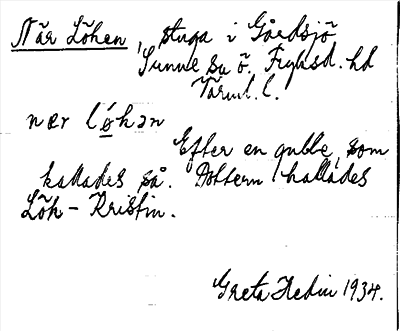 När Löken, stuga i Gårdsjö
Sunne sn ö. Fryksd. hd
Värml. l.
nær lókən
Efter en gubbe, som
kallades så. Dottern kallades
Lök-Kristin.
Greta Hedin 1934.